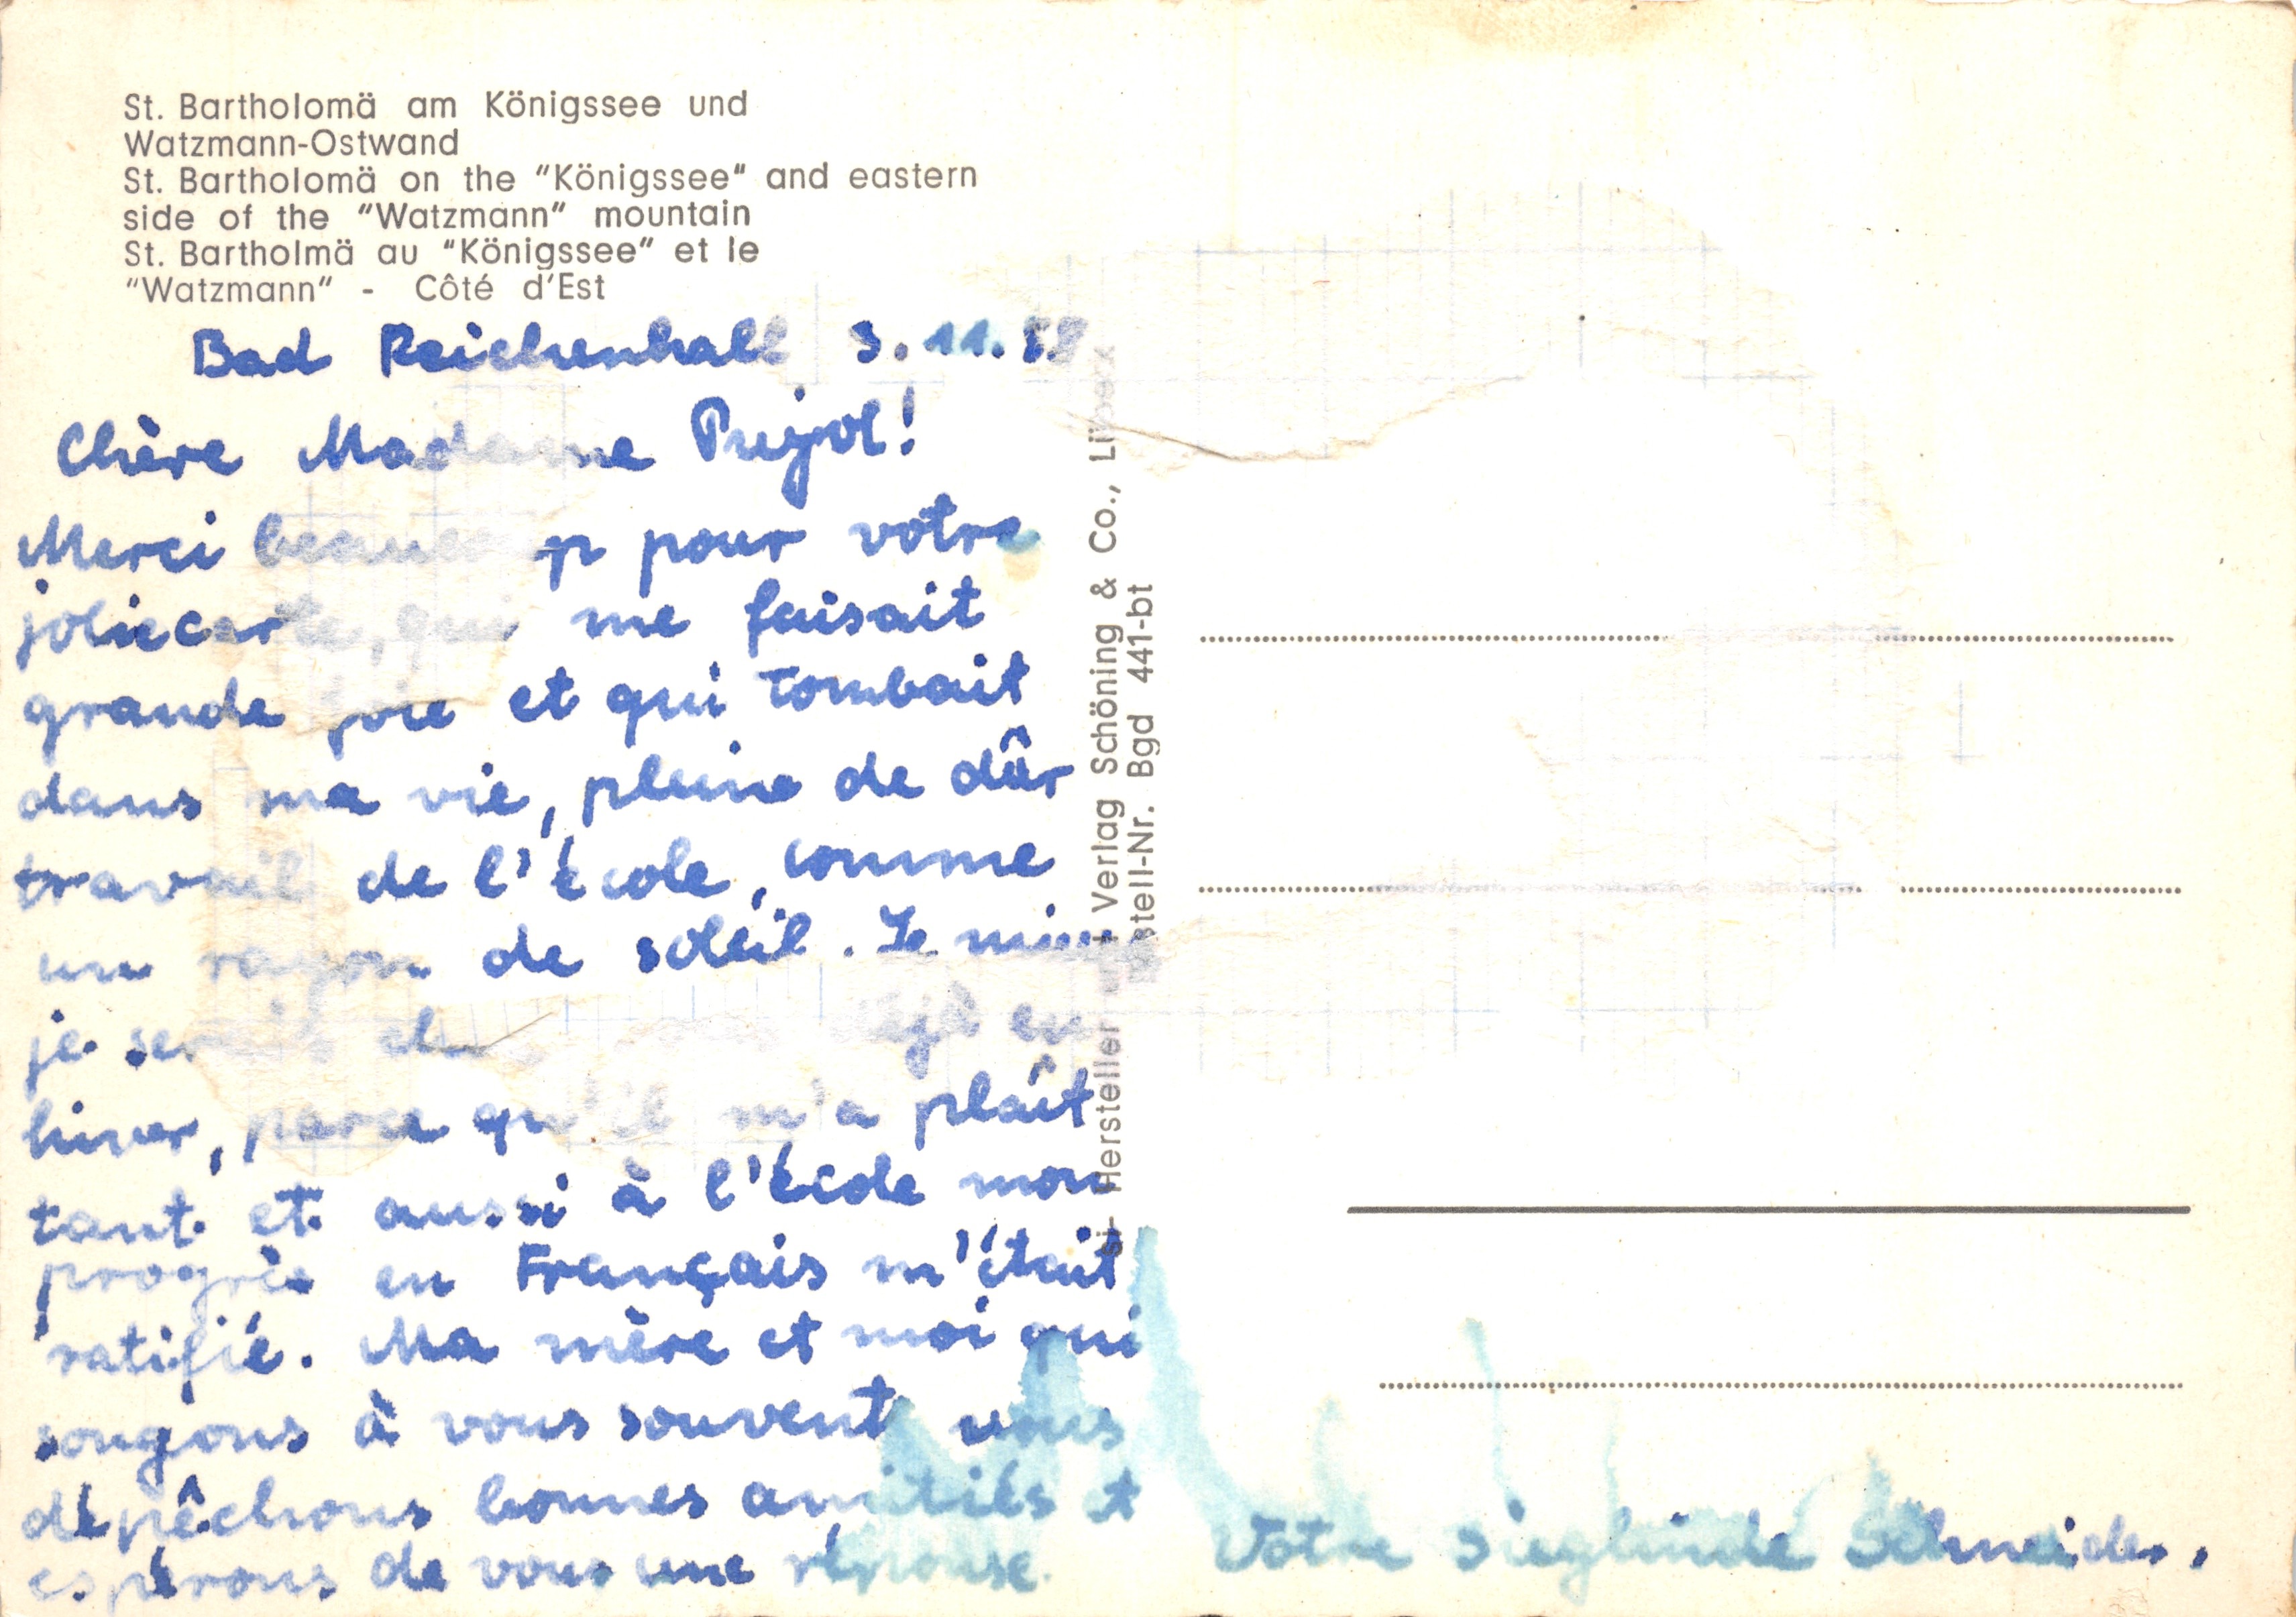 St. Bartholomä am Königssee und
Watzmann-Ostwand
St. Bartholomä on the "Königssee" and eastern
side of the "Watzmann" mountain
St. Bartholmä au "Königssee" et le
"Watzmann" - Côté d'Est
Bad Reichenhall 3.11.
Chère Madame Pujol!
Merci beaucoup pour votre
jolie carte, qui me faisait
grande joie et qui tombait
dans ma vie, pleine de dûr
travail de l'école, comme
un rayon de soleil. Le
je déjà en
hiver, parce qu'il m'a plaît
tant et aussi à l'école mon
progrès en Français m'était
ratifié. Ma mère et moi qui
songons à vous souvent vous
dépêchons bonnes amitiés et
espérons de vous une réponse.
Votre Sieglinde Schneider.
Hersteller Verlag Schöning & Co.,
stell-Nr. Bgd 441-bt